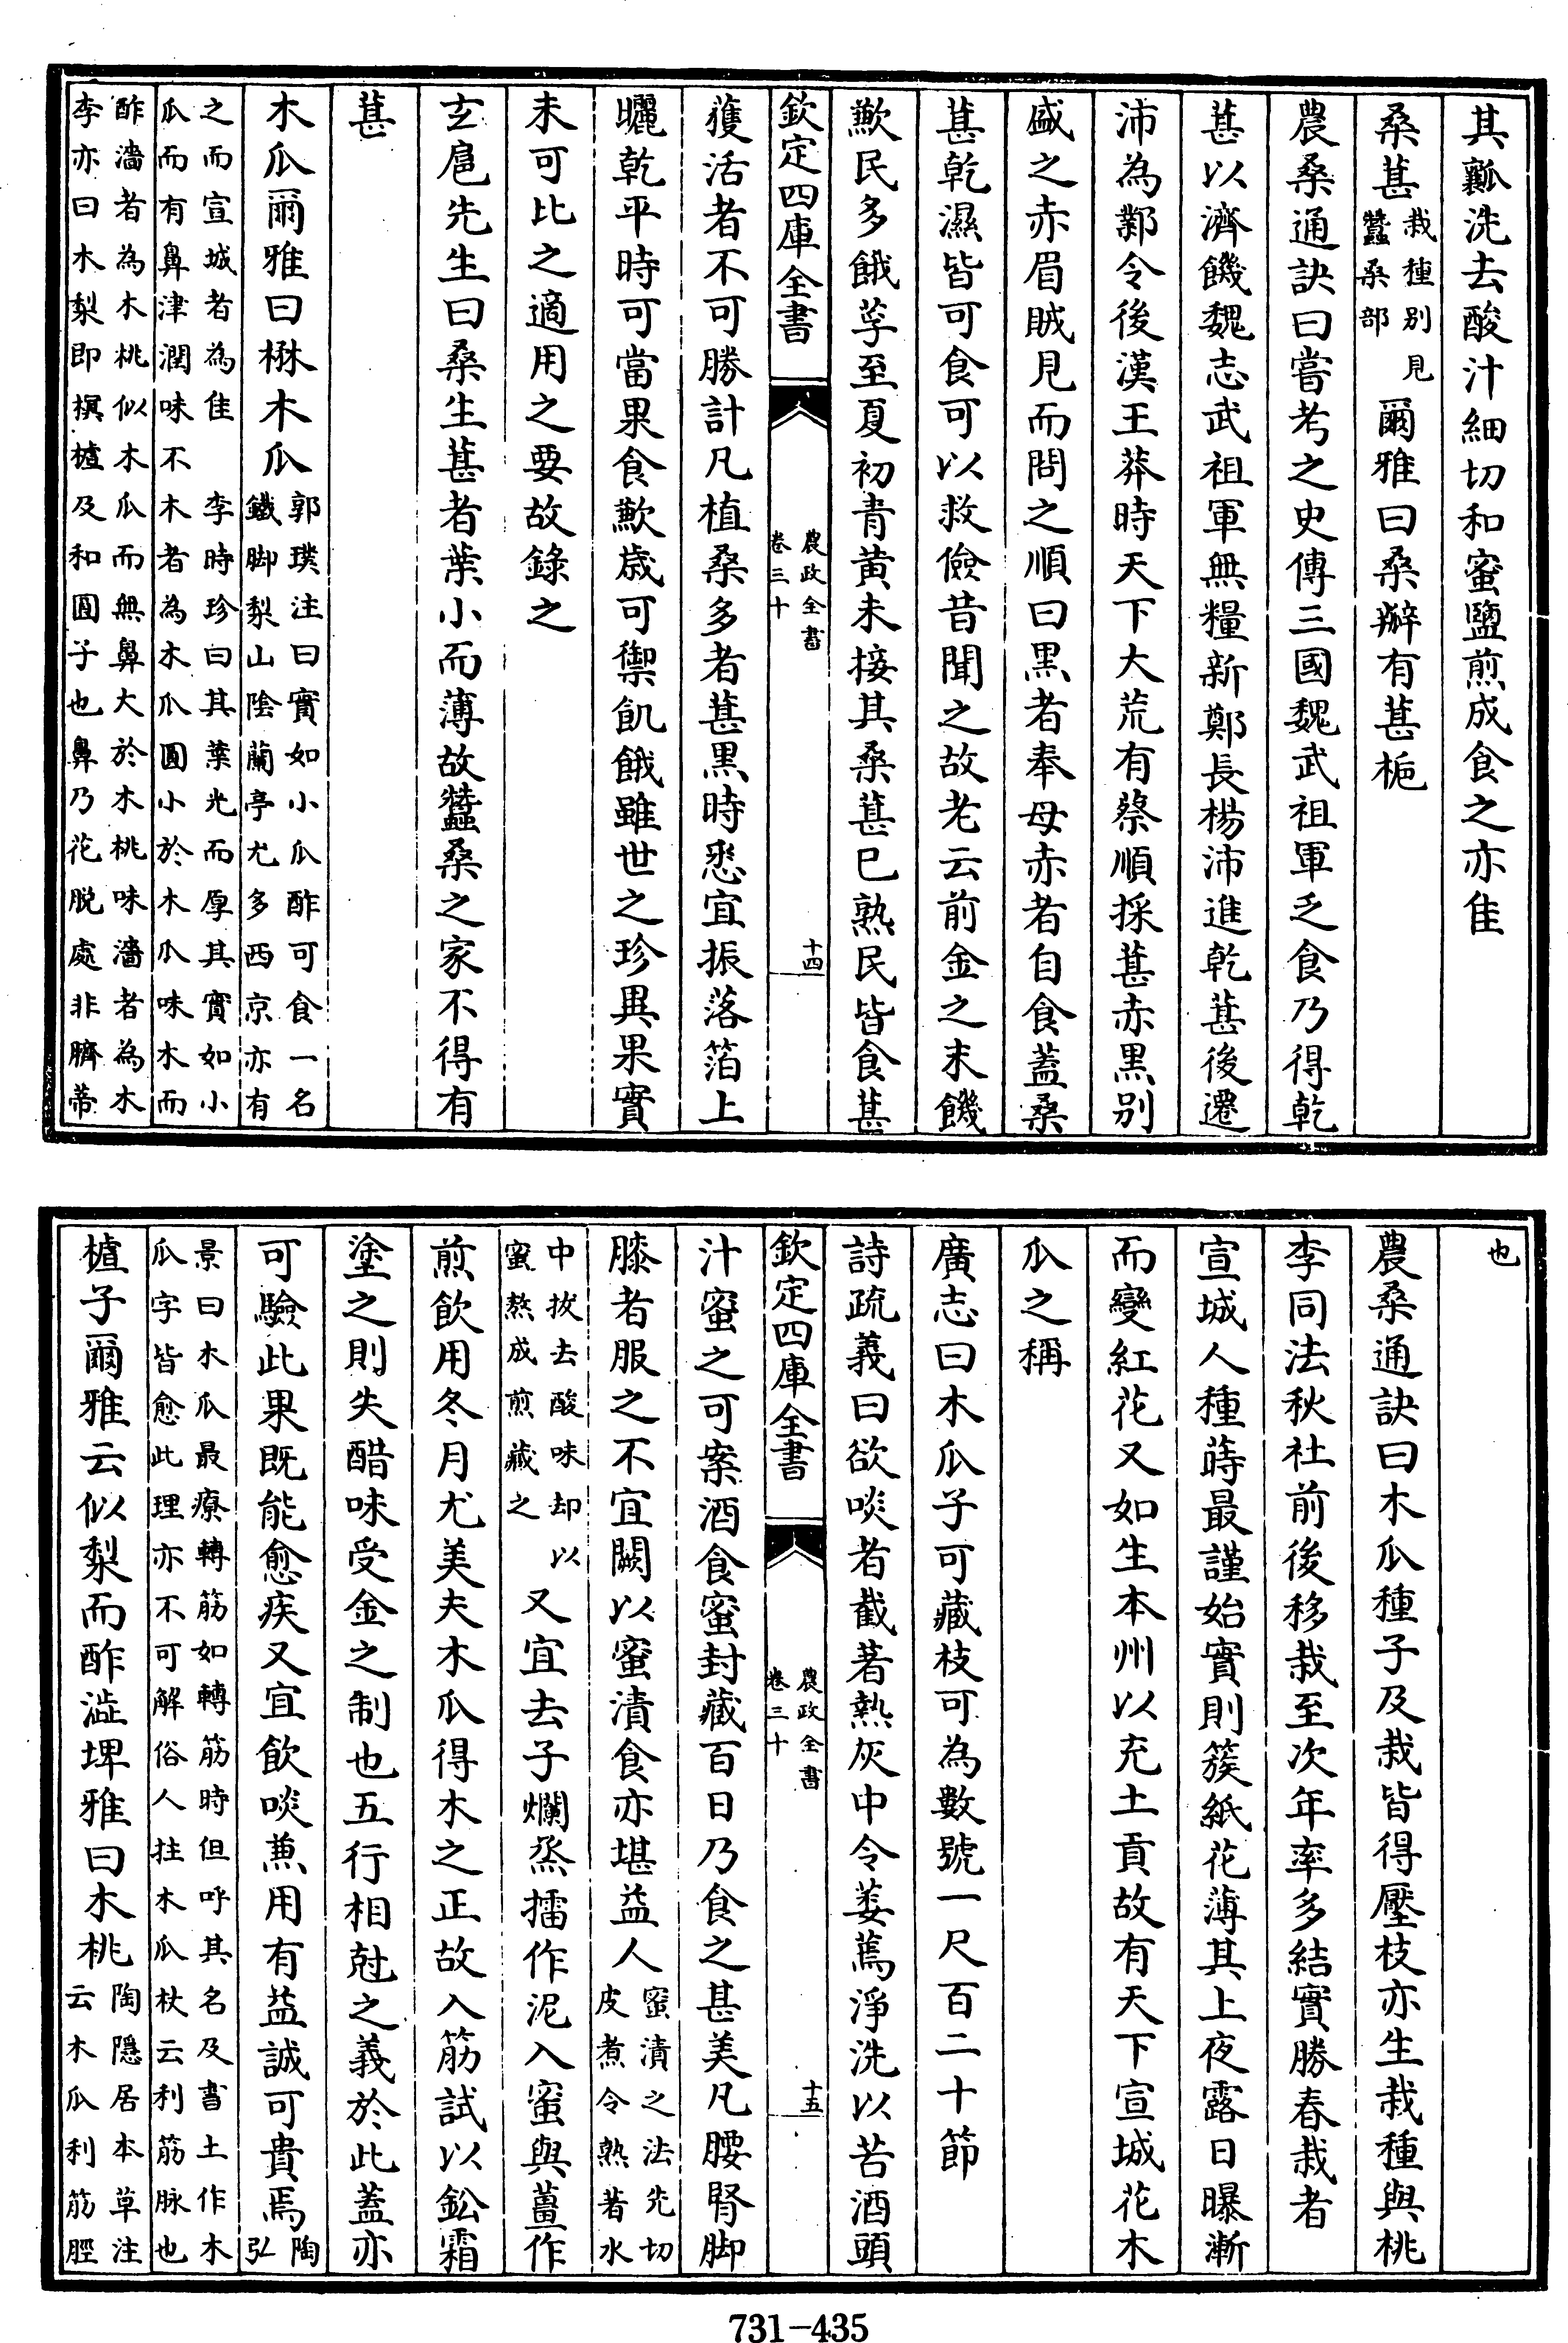 其瓤洗去酸汁細切和蜜鹽煎成食之亦佳
桑葚栽種别見蠶桑部爾雅曰桑辧有葚梔
農桑通訣曰嘗考之史傳三國魏武祖軍乏食乃得乾
葚以濟饑魏志武祖軍無糧新鄭長楊沛進乾葚後遷
沛為鄴令後漢王莽時天下大荒有蔡順採葚赤黑别
盛之赤眉賊見而問之順曰黑者奉母赤者自食蓋桑
葚乾濕皆可食可以救儉昔聞之故老云前金之末饑
歉民多餓莩至夏初青黄未接其桑葚已熟民皆食葚
欽定四庫全書
農政全書
卷三十
十四
獲活者不可勝計凡植桑多者葚黒時悉宜振落箔上
曬乾平時可當果食歉歳可禦飢餓雖世之珍異果實
未可比之適用之要故錄之
玄扈先生曰桑生葚者葉小而薄故蠶桑之家不得有
葚
木瓜爾雅曰楙木瓜郭璞注曰實如小瓜酢可食一名
鐵脚梨山陰蘭亭尤多西京亦有
之而宣城者為佳　李時珍曰其葉光而厚其實如小
瓜而有鼻津潤味不木者為木瓜圓小於木瓜味木而
酢濇者為木桃似木瓜而無鼻大於木桃味濇者為木
李亦曰木梨即榠樝及和圓子也鼻乃花脱處非臍蒂
也
農桑通訣曰木瓜種子及栽皆得壓枝亦生栽種與桃
李同法秋社前後移栽至次年率多結實勝春栽者
宣城人種蒔最謹始實則簇紙花薄其上夜露日曝漸
而變紅花又如生本州以充土貢故有天下宣城花木
瓜之稱
廣志曰木瓜子可藏枝可為數號一尺百二十節
詩疏義曰欲啖者截著熱灰中令萎蔫淨洗以苦酒頭
欽定四庫全書
農政全書
卷三十
十五
汁蜜之可案酒食蜜封藏百日乃食之甚美凡腰腎脚
膝者服之不宜闕以蜜漬食亦堪益人蜜漬之法先切
皮煮令熟著水
中拔去酸味却以
蜜熬成煎藏之又宜去子爛蒸擂作泥入蜜與薑作
煎飲用冬月尤美夫木瓜得木之正故入筋試以鈆霜
塗之則失醋味受金之制也五行相尅之義於此蓋亦
可驗此果既能愈疾又宜飲啖兼用有益誠可貴焉陶
弘
景曰木瓜最療轉筋如轉筋時但呼其名及書土作木
瓜字皆愈此理亦不可解俗人拄木瓜杖云利筋脉也
樝子爾雅云似梨而酢澁埤雅曰木桃陶隱居本草注
云木瓜利筋脛
731-435